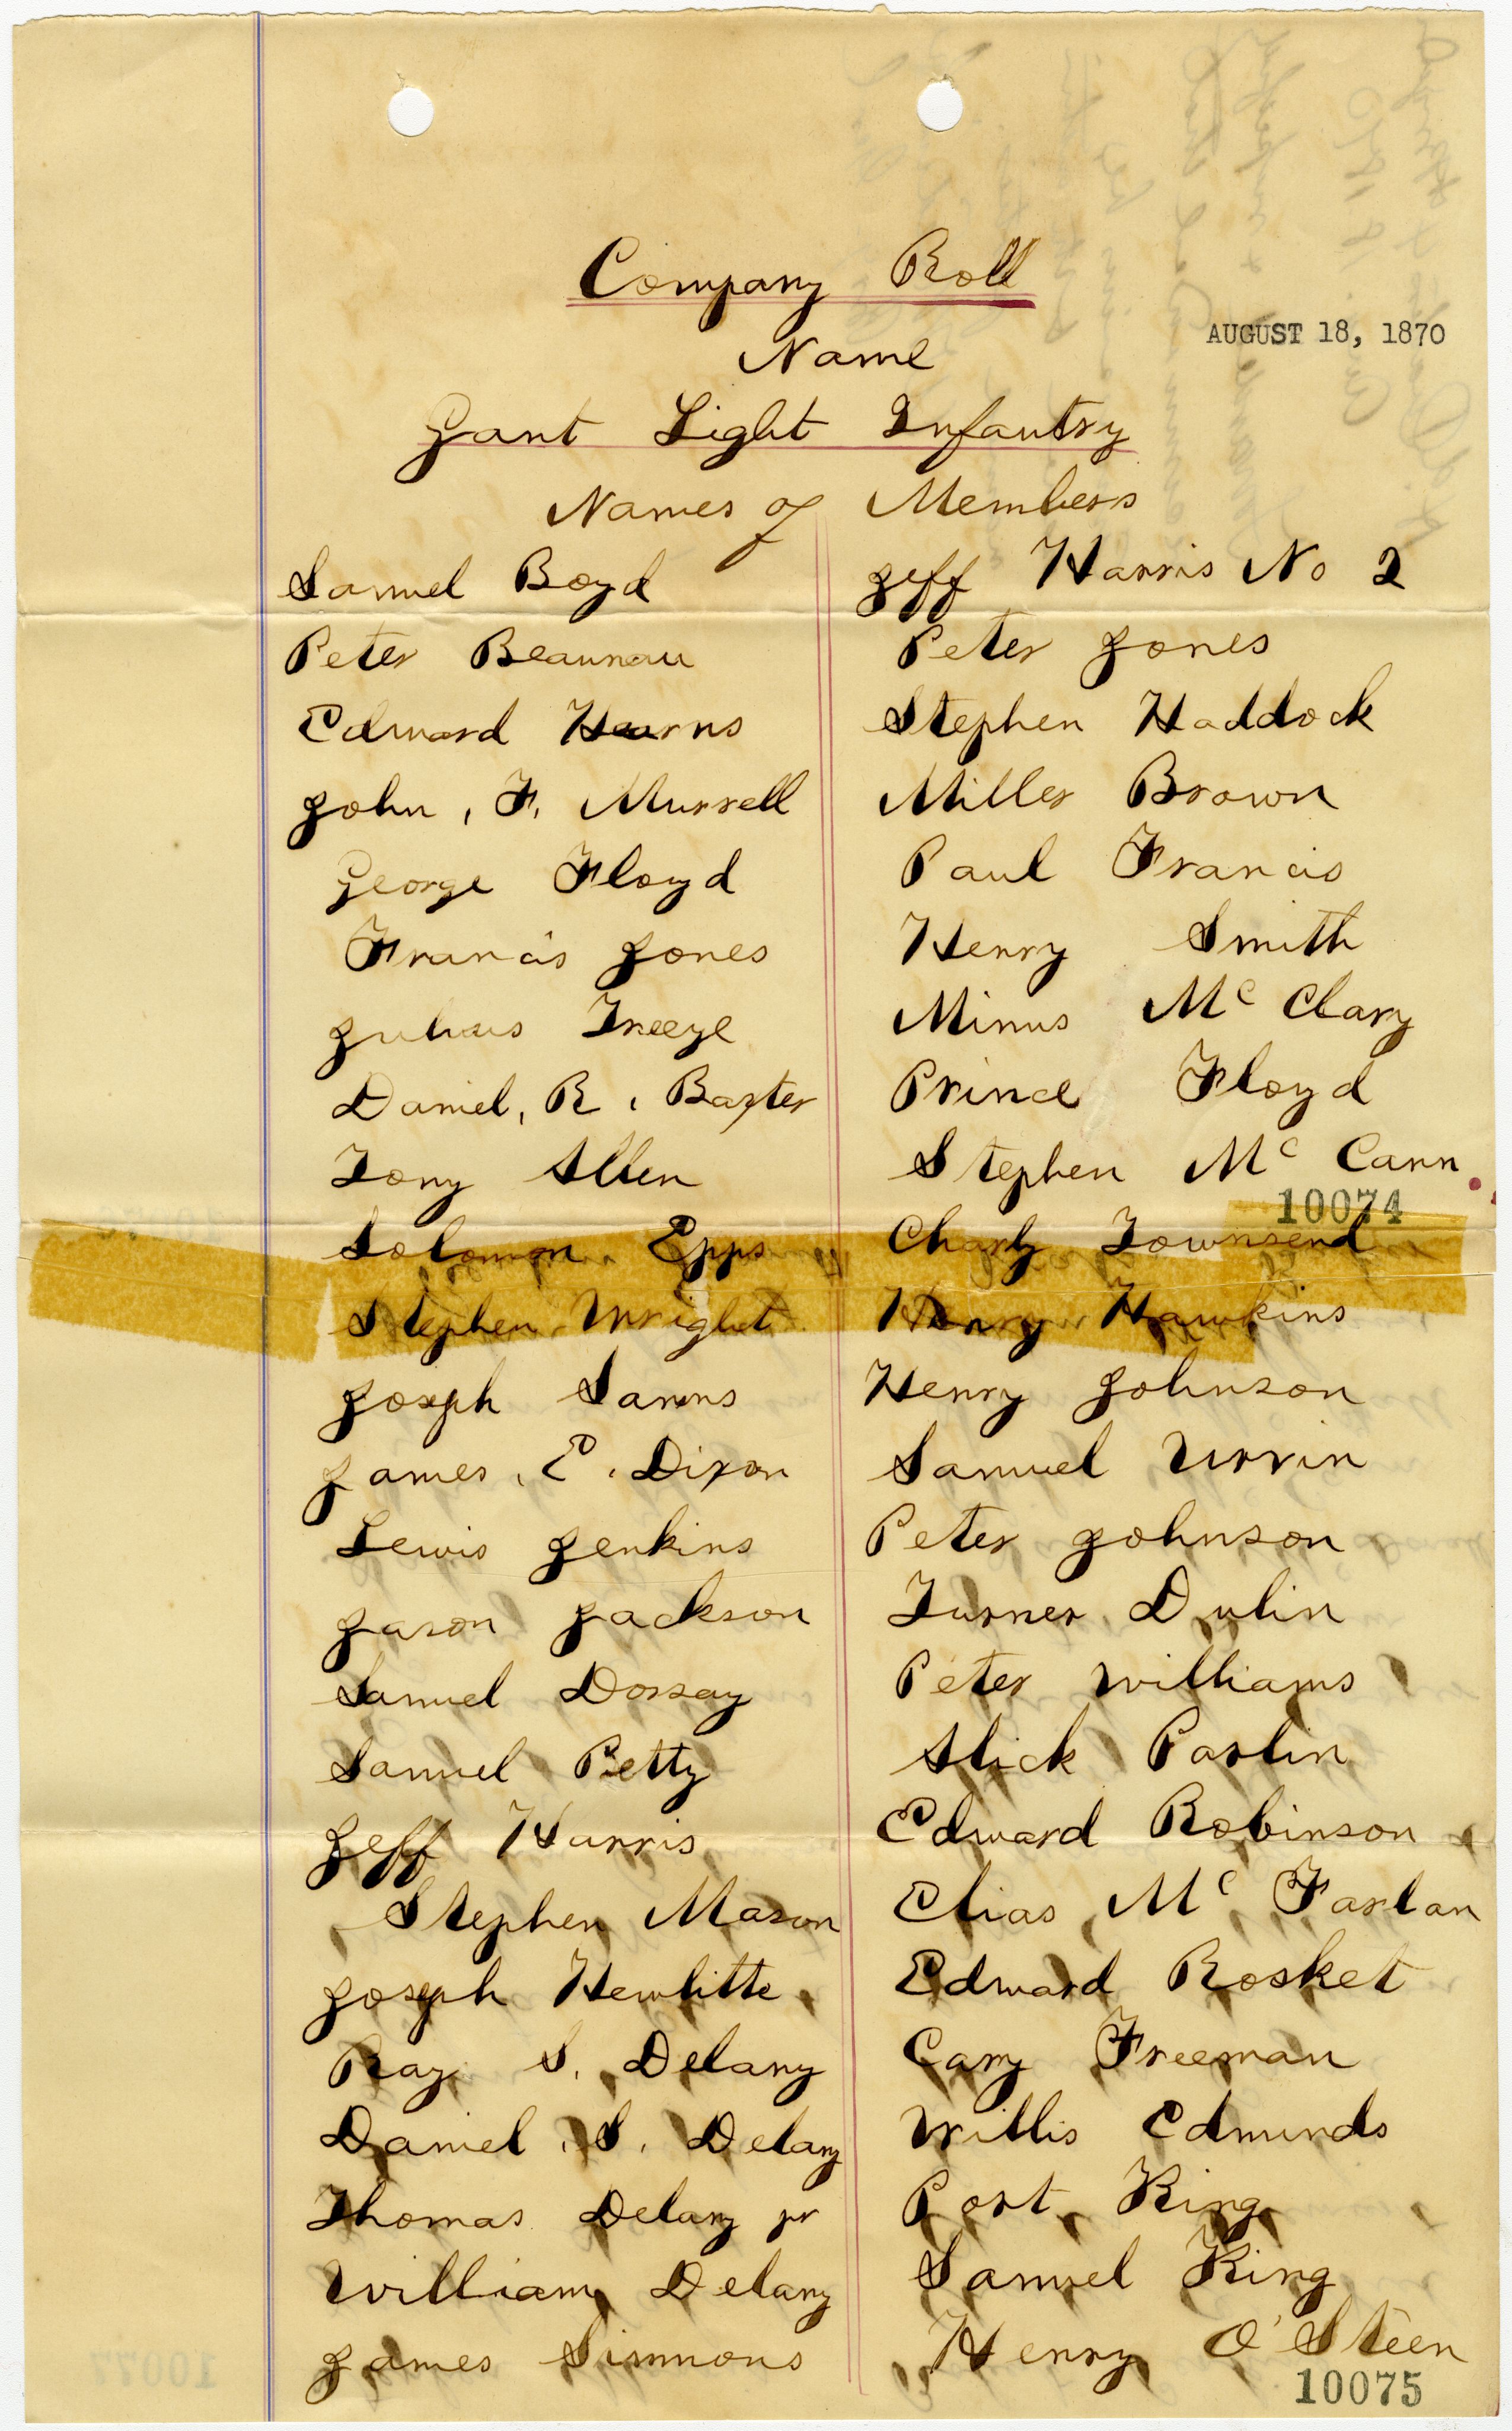 Company Roll
AUGUST 18, 1870
Name
Gant Light Infantry
Names of Members
Samuel Boyd
Peter Beaunau
Edward Hearns
John, F. Murrell
George Floyd
Francis Jones
Julius Treeze
Daniel, R, Baxter
Tony Allen
Solomon Epps
Stephen Wright
Joseph Samns
James, E, Dixon
Lewis Jenkins
Jason Jackson
Samuel Dorsay
Samuel Petty
Jeff Harris
Stephen Mason
Joseph Hewlitte
Ray S. Delany
Daniel, S, Delany
Thomas Delany jr
William Delany
James Simmons
Jeff Harris No 2
Peter Jones
Stephen Haddock
Miller Brown
Paul Francis
Henry Smith
Minus Mc Clary
Prince Floyd
Stephen Mc Cann
10074
Charly Townsend
Henry Hawkins
Henry Johnson
Samuel Urvin
Peter Johnson
Turner Dulin
Peter Williams
Alick Parlin
Edward Robinson
Elias Mc Farlan
Edward Rosket
Cary Freeman
Willis Edmunds
Port King
Samuel King
Henry O'Steen
10075